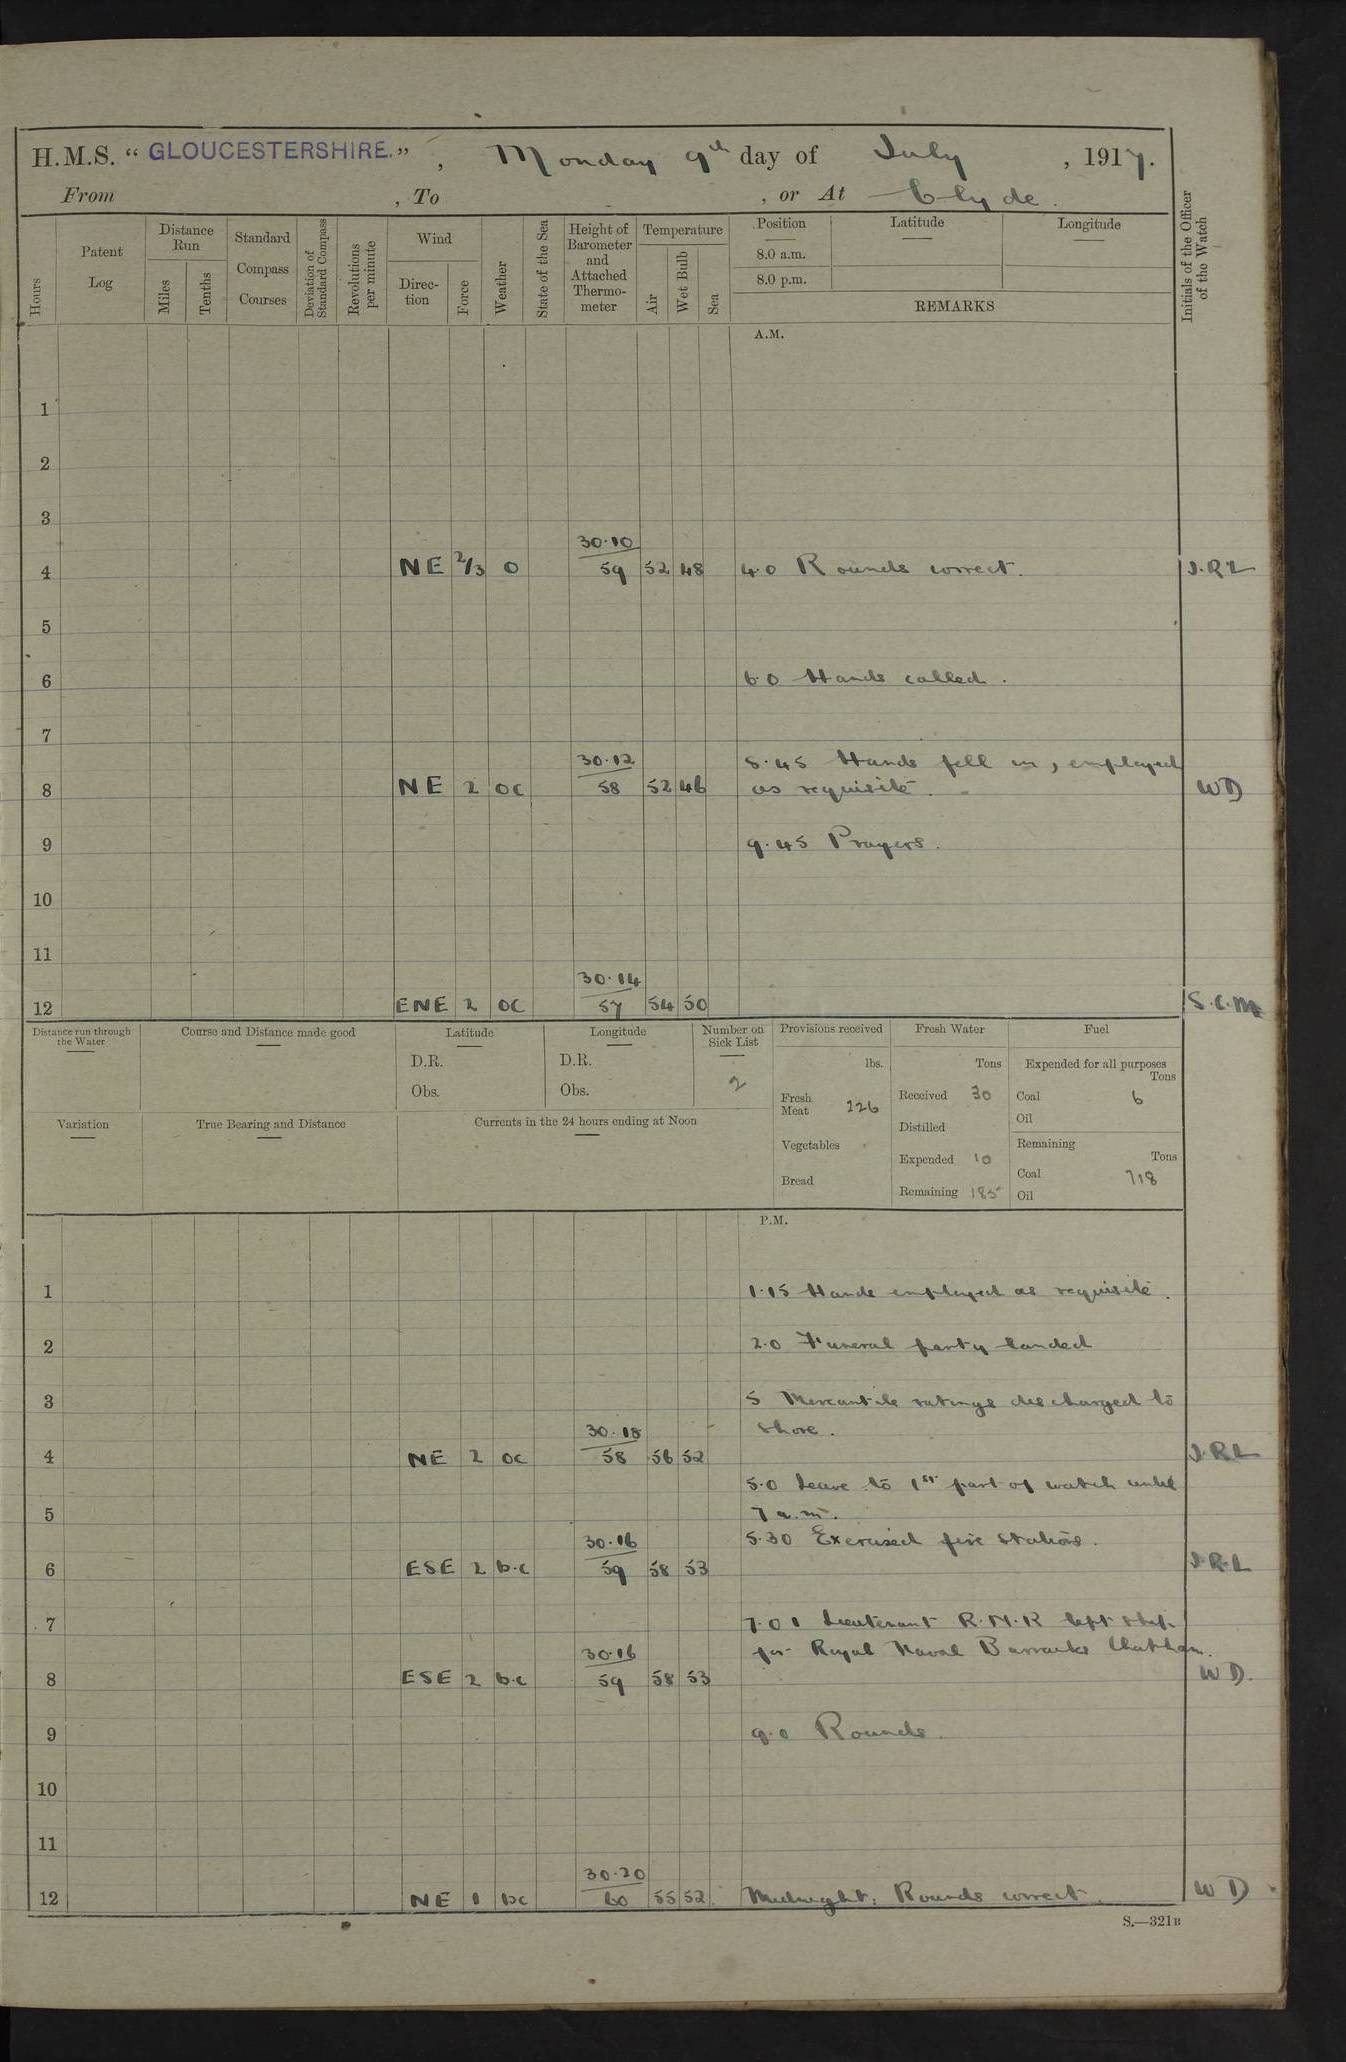 H.M.S. “ GLOUCESTERSHIRE. ” , Monday 9th day of July , 1917.
From , To , or At Clyde.
Hours
Patent Log
Distance Run
Miles
Tenths
Standard Compass Courses
Deviation of Standard Compass
Revolutions per minute
Wind
Direction
Force
Weather
State of the Sea
Height of Barometer and Attached Thermometer
Temperature
Air
Wet Bulb
Sea
Position
8.0 a.m.
8.0 p.m.
Latitude
Longitude
REMARKS
Initials of the Officer of the Watch
A.M.
1
2
3
30.10
4 NE 2/3 O 59 52 48 4.0 Rounds correct. J.R.L
5
6 6.0 Hands called.
7
30.12 8.45 Hands fell in, employed
8 NE 2 OC 58 52 46 as requisite. WD
9 9.45 Prayers.
10
11
30.14
12 ENE 2 OC 57 54 50 S.C.M
Distance run through the Water
Course and Distance made good
Latitude
D.R.
Obs.
Longitude
D.R.
Obs.
Number on Sick List
2
Provisions received
lbs.
Fresh Meat 226
Vegetables
Bread
Fresh Water
Tons
Received 30
Distilled
Expended 10
Remaining 185
Fuel
Expended for all purposes
Tons
Coal 6
Oil
Remaining
Tons
Coal 718
Oil
Variation
True Bearing and Distance
Currents in the 24 hours ending at Noon
P.M.
1 1.15 Hands employed as requisite.
2 2.0 Funeral party landed
3 5 Mercantile ratings discharged to
30.18 shore.
4 NE 2 OC 58 56 52 J.R.L
5.0 Leave to 1st part of watch until
5 7 a.m.
30.16 5.30 Exercised fire stations.
6 ESE 2 b.c 59 58 53 J.R.L
7 7.0 1 Lieutenant R.N.R left ship
30.16 for Royal Naval Barracks Chatham.
8 ESE 2 b.c 59 58 53 WD.
9 9.0 Rounds.
10
11
30.20
12 NE 1 bc 60 55 52 Midnight: Rounds correct. WD
S.—321B